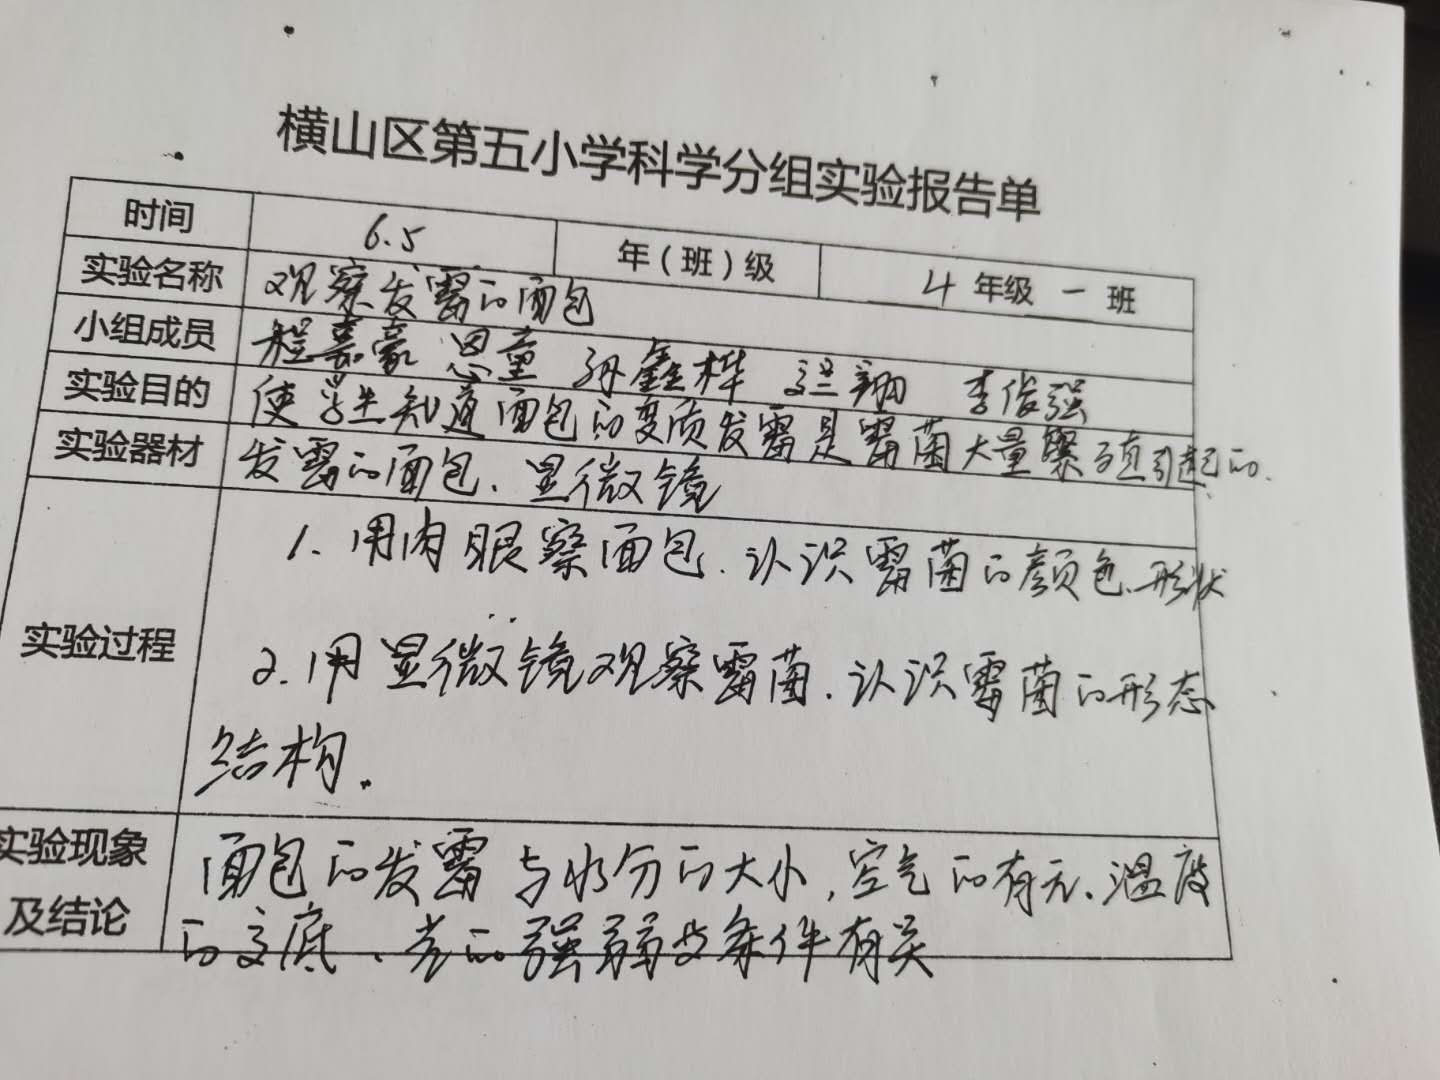 横山区第五小学科学分组实验报告单
时间 6.5 年（班）级 4 年级 一 班
实验名称 观察发霉的面包
小组成员 程嘉豪 思童 孙鑫桦 翔 李俊强
实验目的 使学生知道面包的变质发霉是霉菌大量繁殖引起的.
实验器材 发霉的面包、显微镜
实验过程
1. 用肉眼察面包.认识霉菌的颜色.形状
2.用显微镜观察霉菌.认识霉菌的形态
结构.
实验现象
及结论
面包的发霉与水分的大小,空气的有无、温度
的高底、光的强弱等条件有关